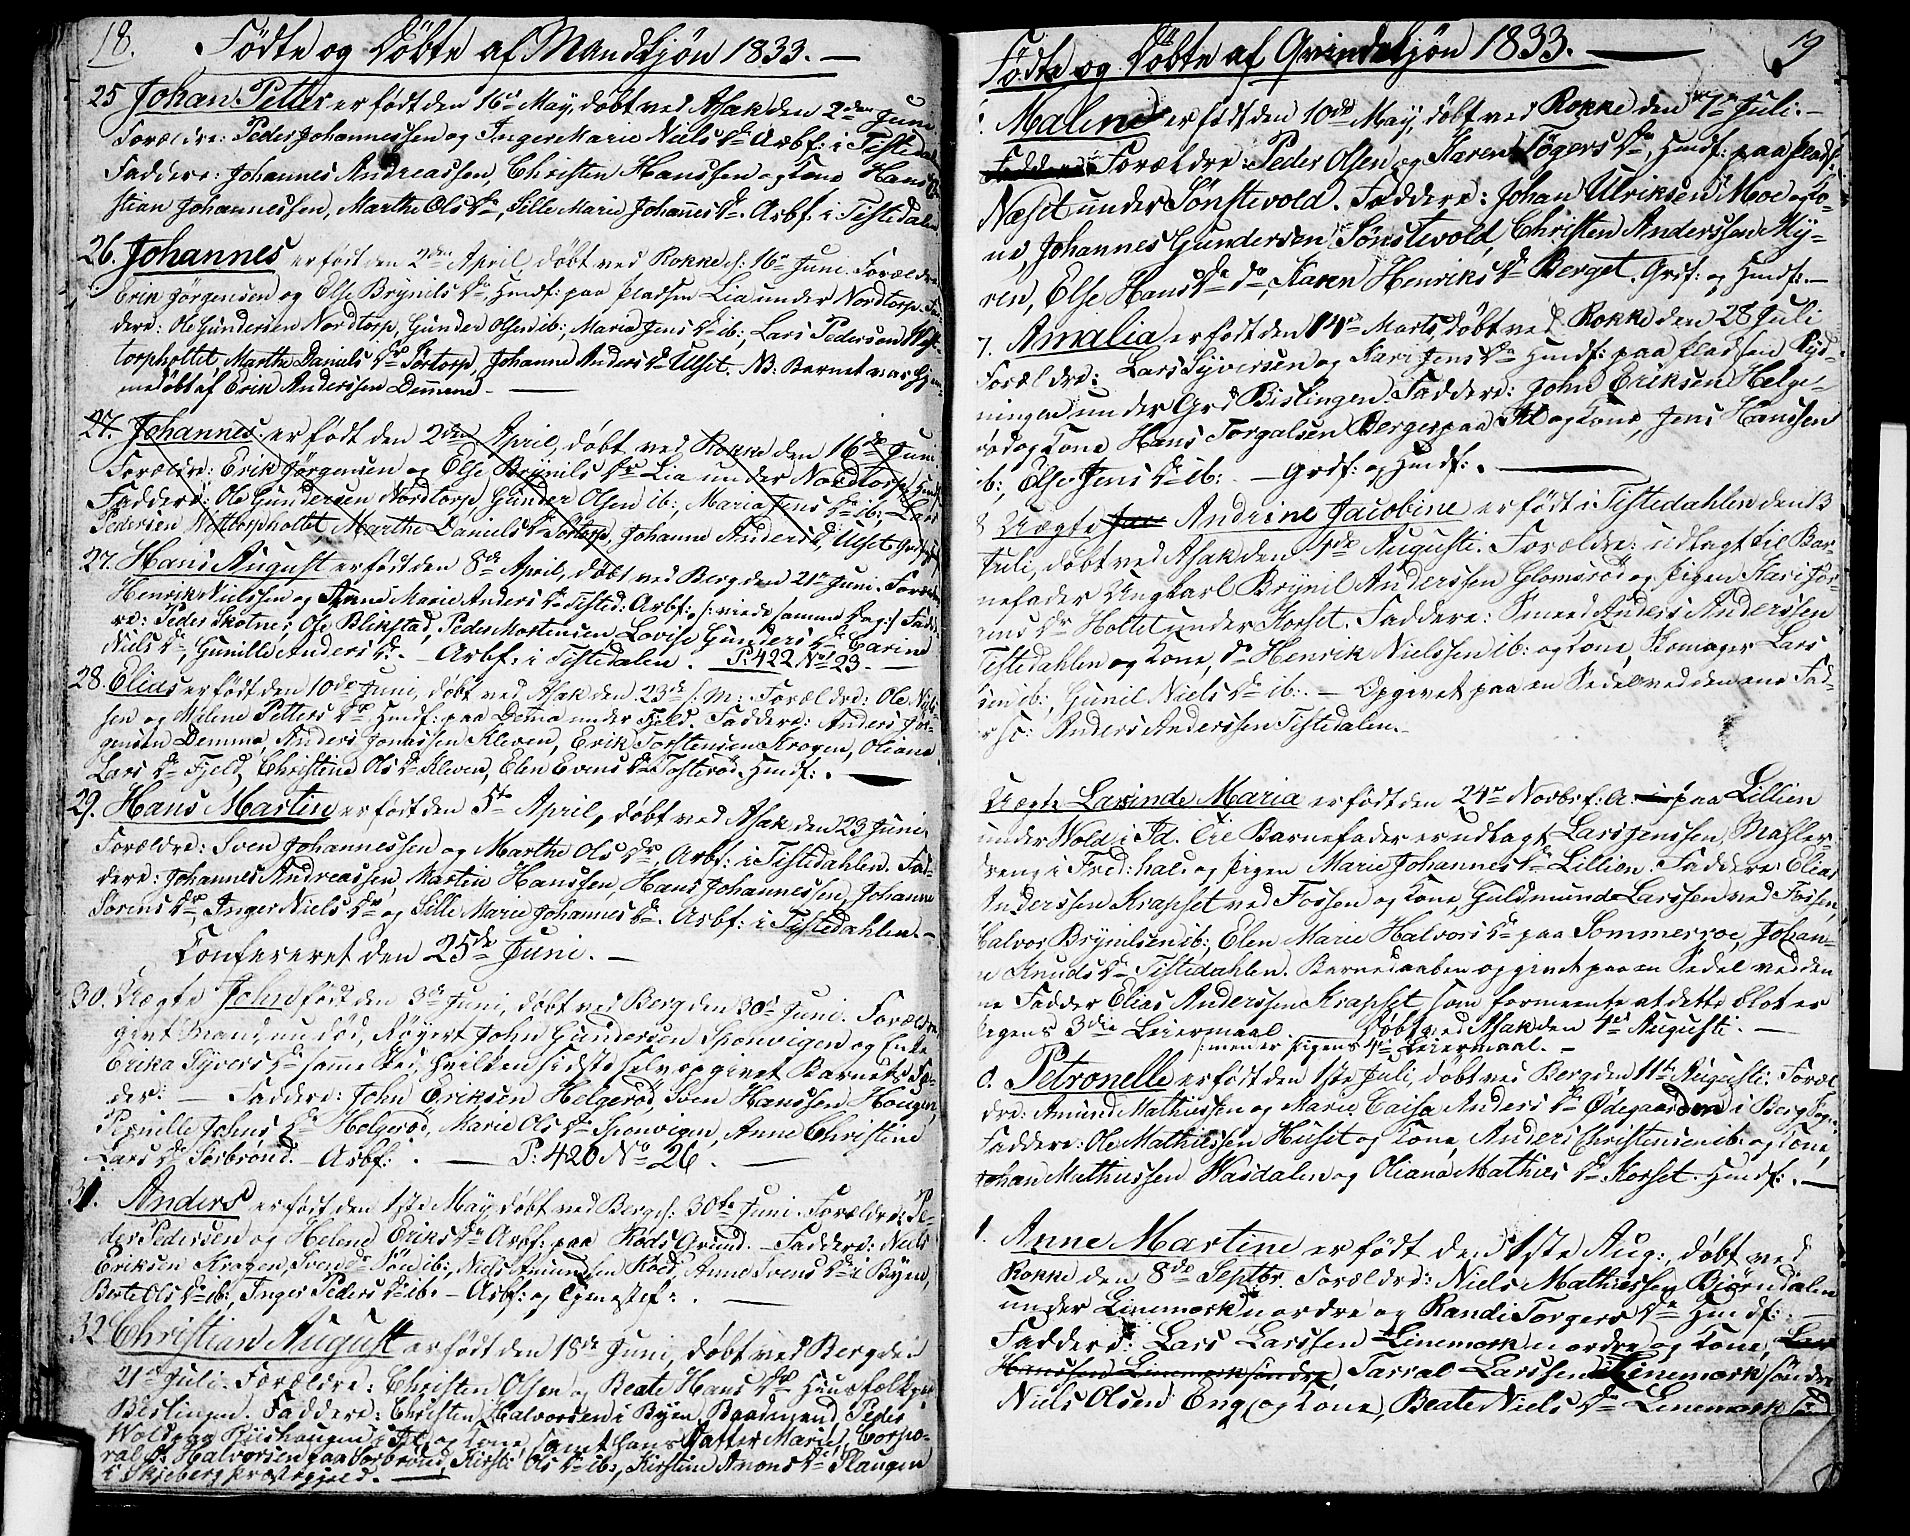 18. Fødte og Døbte af Mandkjøn 1833. —
25 Johan Petter er født den 16de May, døbt ved Asak den 2den Juni
Forældre: Peder Johannessen og Inger Marie Niels Dr Arbf: i Tistedal
Faddere: Johannes Andreassen, Christen Hanssen og Kone Hans Chri
stian Johannessen, Marthe Ols Dr, Sille Marie Johannes Dr. Arbf. i Tistedalen
26. Johannes er født den 2den April, døbt ved Rokke d: 16de Juni. Forældre
Erik Jørgensen og Else Brynils Dr, Husmf: paa Pladsen Lia under Nordtorp. Fad
dere: Ole Gundersen Nordtorp, Gunder Olsen ib:, Maria Jens Dr ib:, Lars Pedersen
torpholtet, Marthe Daniels Dr Sørtorp, Johanne Anders Dr Ulset. NB: Barnet var hjem
medøbt af Erik Anderssen Demmene. —
27. Johannes er født den 2den April, døbt ved Rokke den 16de Juni
Forældre: Erik Jørgensen og Else Brynils Dr Lia under Nordtorp
Faddere: Ole Gundersen Nordtorp, Gunder Olsen ib: Maria Jens Dr ib:, Lars
Pedersen torpholtet, Marthe Daniels Dr Sørtorp, Johanne Anders Dr Ulset
27. Hans August er født den 8de April, døbt ved Berg den 21de Juni. Foræld
Henrik Nielssen og Anne Marie Anders Dr Tisted: Arbf: /: viede samme Dag :/ Fadde
re: Peder Skotne, Ole Blikstad, Peder Mortensen, Lovise Gunders Dr, Carine
Niels Dr, Gunille Anders Dr. — Arbf: i Tistedalen. P: 422 No 23. —
28. Elias er født den 10de Juni, døbt ved Asak den 23de s: M: Forældre: Ole Niels
sen og Milene Petters Dr Husmf: paa Dema under Fjeld. Faddere: Anders Jør-
gensen Demma, Anders Jonassen Kleven, Erik Torstensen Krogen, Oliane
Lars Dr Fjeld, Christine Ols Dr Kleven, Elen Evens Dr Tosterød. Husmf: . —
29. Hans Martin er født den 5te April, døbt ved Asak den 23 Juni,
Forældre: Sven Johannessen og Marthe Ols Dr, Arbf: i Tistedahlen. Fad-
dere: Johannes Andreassen, Marten Hanssen, Hans Johannessen, Johanne
Sørens Dr, Inger Niels Dr og Sille Marie Johannes Dr. Arbf: i Tistedahlen. —
Confereret den 25de Juni. —
30. Uægte John født den 3de Juni, døbt ved Berg den 30te Juni. Forældre
givt Mand, nu død, Røgert John Gundersen Sponvigen og Enke
Erika Syvers Dr samme Sted, hvilken sidste selv opgivet Barnets Fa-
der: — Faddere: John Eriksen Helgerød, Sven Hanssen Hougen,
Pernille Johns Dr Helgerød, Marie Ols Dr Sponvigen, Anne Christine
Lars Dr Sørbrønd. — Arbf: . — P: 420 No 26. —
31. Anders er født den 1ste May, døbt ved Berg d: 30te Juni. Forældre: Pe-
der Pedersen og Helene Eriks Dr Arbf: paa Røds Grund. — Faddere: Niels
Eriksen Krogen, Svend Søn ib:, Niels Amundsen Rød, Anne Svens Dr i Byen,
Berte Ols Dr ib:, Inger Peders Dr ib: — Arbf: og Tjenestef: . —
32 Christian August er født den 18de Juni, døbt ved Berg den
21de Juli. Forældre: Christen Olsen og Beate Hans Dr Huusfolk paa
Bislingen. Faddere: Christen Halvorsen i Byen, Baadsmand Peder
Wold og Riishaugen i Id, og Kone, samt hans Datter Marie, Corpo-
ral O: Halvorsen paa Sørbrønd, Kirsti Ols Dr ib:, Kirstine Amons Dr Haugen
i Skjeberg Præstegjeld. —
Fødte og Døbte af Qvindekjøn 1833. — 19
Maline er født den 10de May, døbt ved Rokke den 7de Juli. —
Forældre: Peder Olsen og Karen Tøgers Dr, Husmf: paa Plads
Næset under Sønstevold. Faddere: Johan Ulriksen Moe og Ko-
ne, Johannes Gundersen Sønstevold, Christen Anderssen My-
ren, Else Hans Dr do, Karen Henriks Dr Berget. Grdf: og Husmf: —
7. Amalia er født den 14de Marts, døbt ved Rokke den 28 Juli
Forældre: Lars Syversen og Kari Jens Dr Husmf: paa Pladsen Ryd-
ningen under Grd Bislingen. Faddere: John Eriksen Helge-
rød og Kone Hans Torgalsen Berger paa Id og Kone, Jens Hanssen
ib:, Else Jens Dr ib: — Grdf: og Husmf: . —
8 Uægte Andrine Jacobine er født i Tistedahlen den 13
Juli, døbt ved Asak den 4de Augusti. Forældre: udlagt til Bar-
nefader Ungkarl Brynil Anderssen Glomsrød og Pigen Kari Jør
gens Dr Holtet under Korset. Faddere: Smeed Anders Anderssen
Tistedahlen og Kone, do Henrik Nielssen ib: og Kone, Skomager Lars
sen ib:, Gunil Niels Dr ib: — Opgivet paa en Sedel ved den ene Fad-
er sc: Anders Anderssen Tistedalen. —
Uægte Larinde Maria er født den 24de Novbr f: A: paa Lillien
under Wold i Id. Til Barnefader er udlagt Lars Jenssen, Mahler-
dreng i Fred: hal: og Pigen Marie Johannes Dr Lillien. Faddere: Elias
Anderssen Krapset ved Fossen og Kone, Guldmund Larssen ved Fossen,
Halvor Brynilsen ib:, Elen Marie Halvors Dr paa Sommerroe, Johan-
ne Knuds Dr Tistedahlen. Barnedaaben opgivet paa en Sedel ved den
ene Fadder Elias Anderssen Krapset, som formeente at dette blot er
Pigens 3die Leiermaal. — Døbt ved Asak den 4de Augusti. —
/: men er Pigens 4de Leiermaal. —
Petronelle er født den 1ste Juli, døbt ved Berg den 11te Augusti. Foræl
dre: Amund Mathissen og Marie Caisa Anders Dr Ødegaarden i Berg Sogn:
Faddere: Ole Mathissen Huset og Kone, Anders Christensen ib: og Kone,
Johan Mathissen Wasdalen og Oliana Mathies Dr Korset. Husmf: . —
1. Anne Martine er født den 1ste Aug:, døbt ved
Rokke den 8de Septbr. Forældre: Niels Mathiessen Bjørndalen
under Linemork nordre og Randi Torgers Dr Husmf: —
Faddere: Lars Larssen Linemork nordre og Kone, Lars
Hanssen Linemork søndre, Tarral Larssen Linemork søndre
Niels Olsen Eng og Kone, Beate Niels Dr Linemork